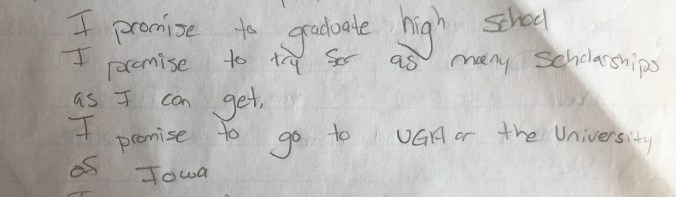 I promise to graduate high school
I promise to try for as many scholarships
as I can get.
I promise to go to UGA or the University
of Iowa